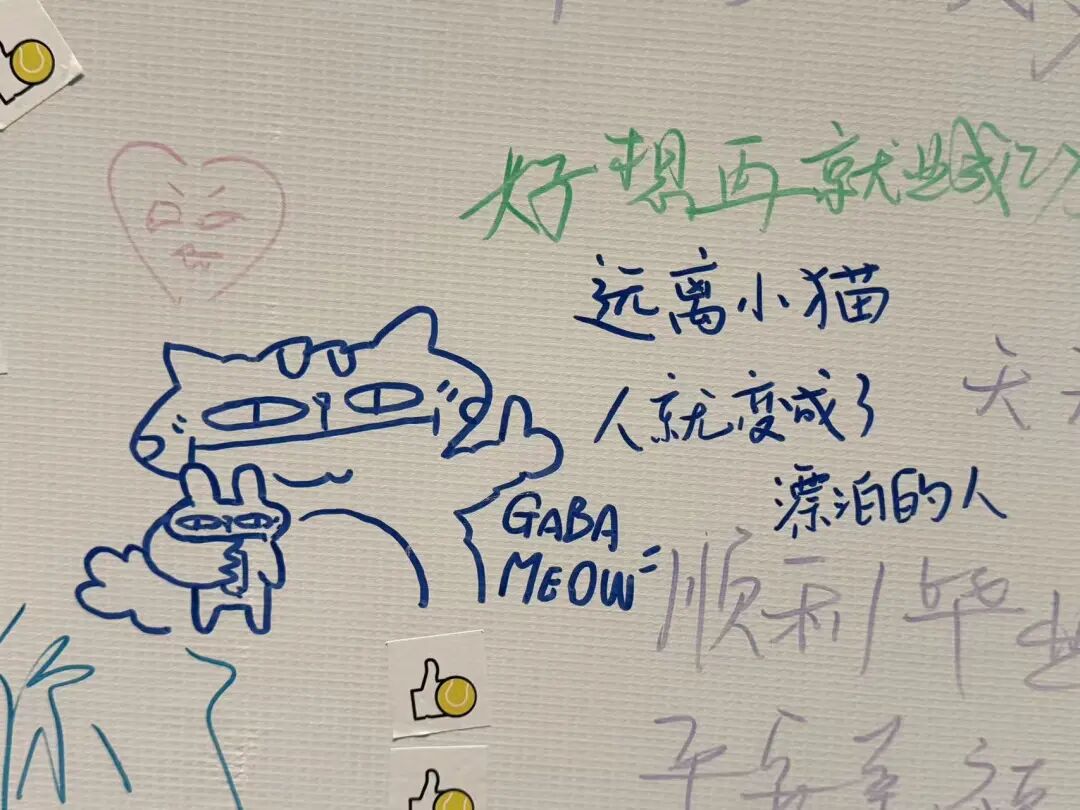 好想再就
远离小猫
人就变成了
漂泊的人
GABA
MEOW
顺利毕业
你
了